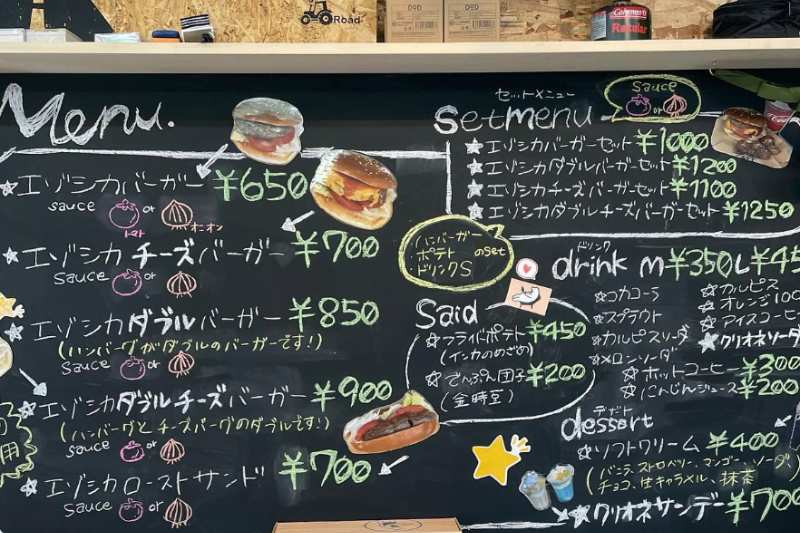 Road
DOD
DOD
Coleman
Regular
Menu.
エゾシカバーガー ¥650
sauce or
トマト オニオン
エゾシカ チーズバーガー ¥700
sauce or
エゾシカ ダブルバーガー ¥850
(ハンバーグがダブルのバーガーです!)
sauce or
エゾシカダブルチーズバーガー ¥900
(ハンバーグとチーズバーグのダブルです!)
sauce or
エゾシカ ローストサンド ¥700
sauce or
用
セットメニュー
Setmenu
sauce
or
エゾシカバーガーセット ¥1000
エゾシカダブルバーガーセット ¥1200
エゾシカチーズバーガーセット ¥1100
エゾシカダブルチーズバーガーセット ¥1250
・ハンバーガー
・ポテト のset
・ドリンクS
Said
フライポテト ¥450
(インカのめざめ)
でんぷん団子 ¥200
(金時豆)
ドリンク
drink M¥350 L¥45
コカコーラ
スプラウト
カルピスソーダ
メロンソーダ
カルピス
オレンジ100
アイスコーヒー
クリオネソーダ
ホットコーヒー ¥300
にんじんジュース ¥200
デザート
dessert
ソフトクリーム ¥400
(バニラ、ストロベリー、マンゴー、ソーダ
チョコ、生キャラメル、抹茶)
クリオネサンデー ¥700